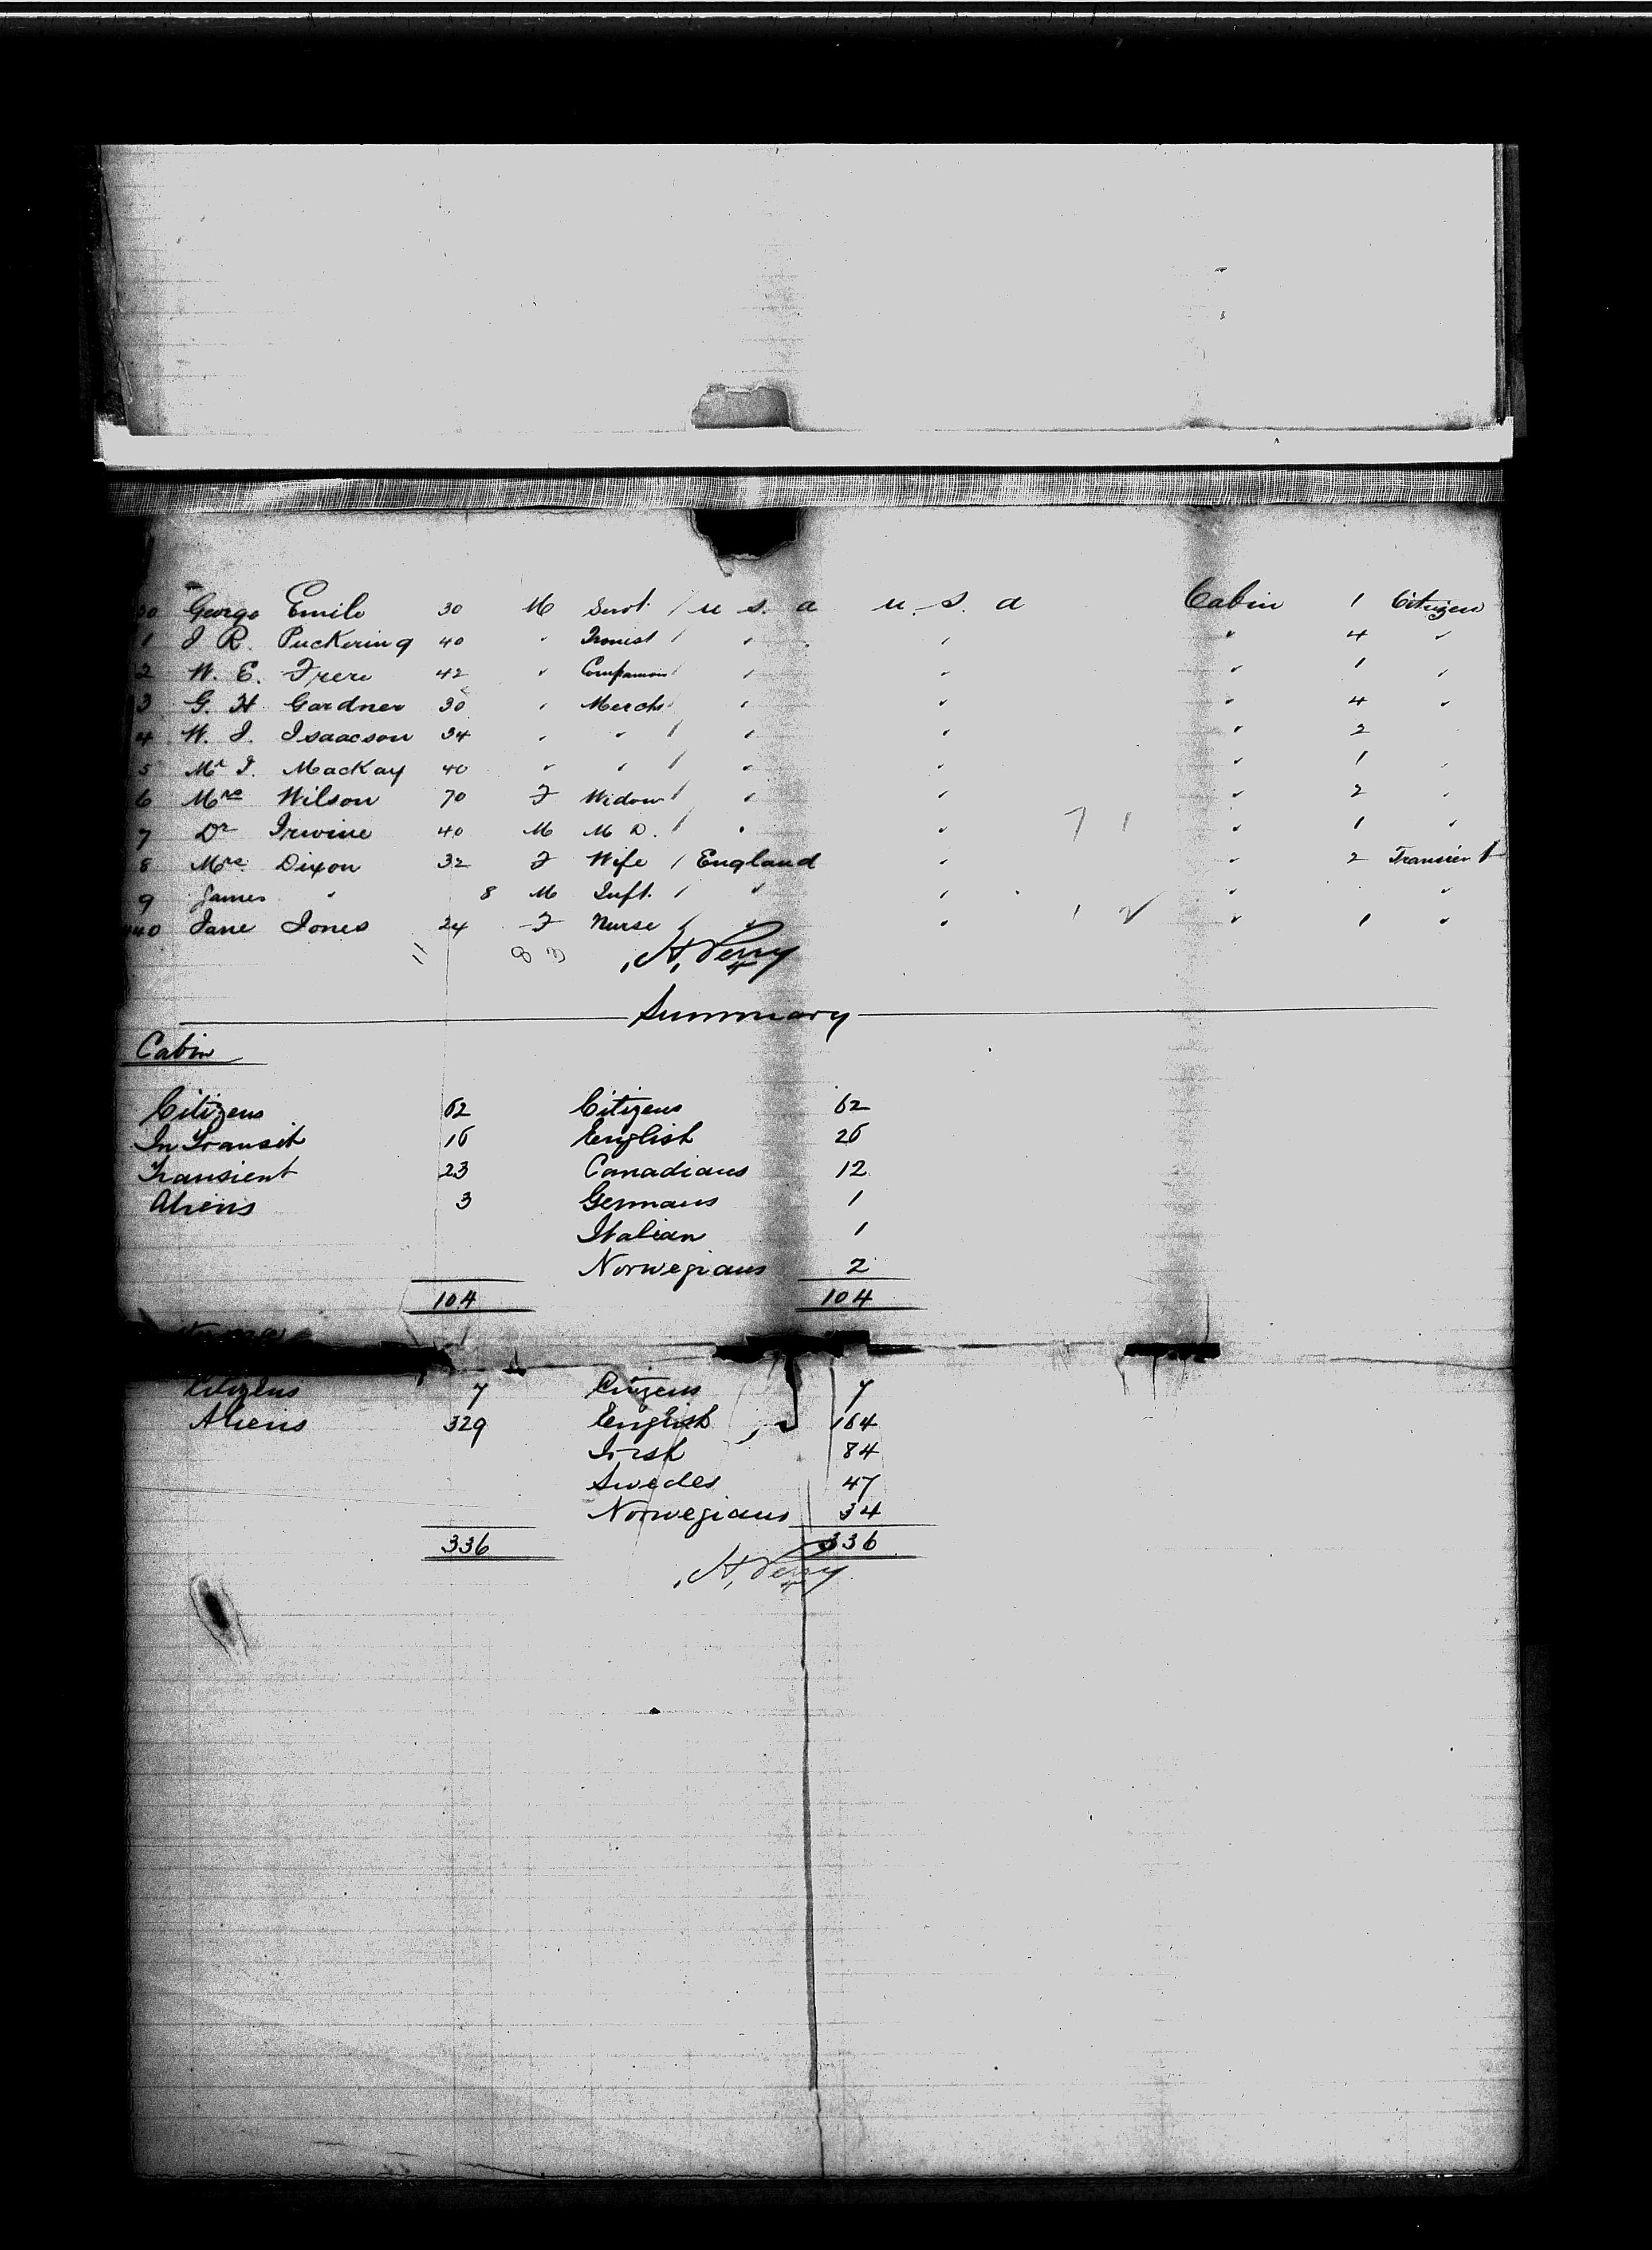 30 George Emile 30 M Servt. / U. S. A U. S. A Cabin 1 Citizen
1 J R. Puckering 40 " / " " " 4 "
2 W. E. Frere 42 " Companion / " " " 1 "
3 G. H Gardner 30 " Mercht / " " " 4 "
4 W. J. Isaacson 34 " " / " " " 2
5 Mr J. MacKay 40 " " / " " " 1 "
6 Mrs Wilson 70 F Widow / " " " 2 "
7 Dr Irwine 40 M M D. / " " 7 1 " 1 "
8 Mrs Dixon 32 F Wife / England " " 2 Transient
9 James " 8 M Inft. / " " " "
440 Jane Jones 24 F Nurse / " " 1 2 " 1 "
11 8 3 H, Perry
Summary
Cabin
Citizens 62 Citizens 62
In Transit 16 English 26
Transient 23 Canadians 12
Aliens 3 Germans 1
Italian 1
Norwegians 2
104 104
Citizens 7 Citizens 7
Aliens 329 English 164
Irish 84
Swedes 47
Norwegians 34
336 336
H, Perry